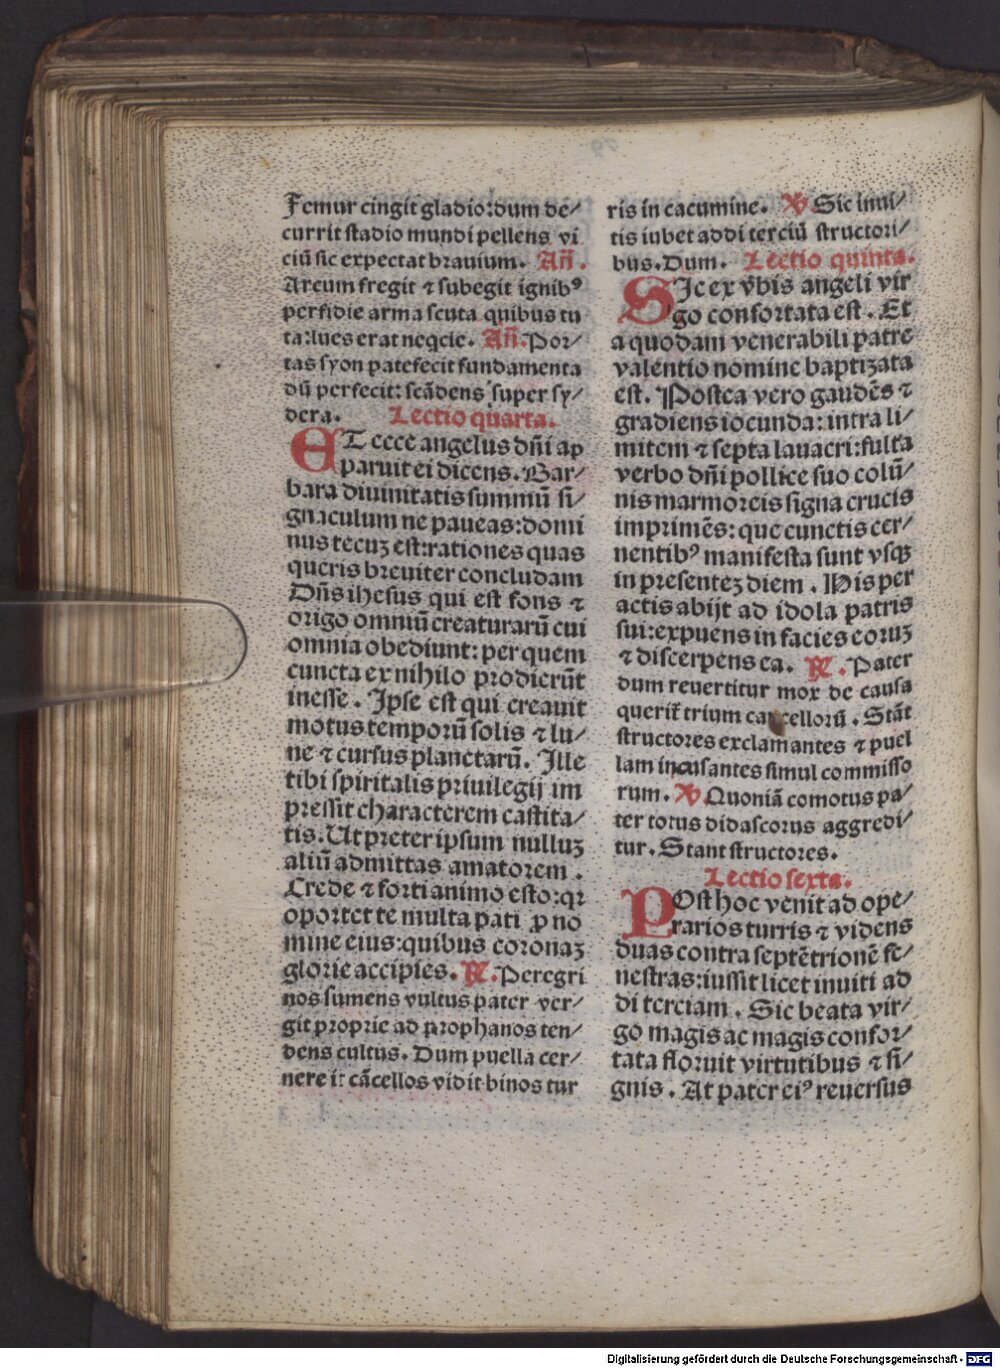 Femur cingit gladio: dum de/
currit stadio mundi pellens vi
ciũ sic expectat brauium. Añ.
Arcum fregit ⁊ subegit ignibꝰ
perfidie arma scuta quibus tu
ta: lues erat neqcie. Añ. Por/
tas syon patefecit fundamenta
dũ perfecit: scãdens super sy/
dera. Lectio quarta.
ET ecce angelus dñi ap
paruit ei dicens. Bar/
bara diuinitatis summũ si/
gnaculum ne paueas: domi
nus tecuꝫ est: rationes quas
queris breuiter concludam
Dñs ihesus qui est fons ⁊
origo omniũ creaturarũ cui
omnia obediunt: per quem
cuncta ex nihilo prodierũt
inesse. Ipse est qui creauit
motus temporũ solis ⁊ lu/
ne ⁊ cursus planetarũ. Ille
tibi spiritalis priuilegij im
pressit characterem castita/
tis. Ut preter ipsum nulluꝫ
aliũ admittas amatorem.
Crede ⁊ forti animo esto: qꝛ
oportet te multa pati ꝓ no
mine eius: quibus coronaꝫ
glorie accipies. ℟. Peregri
nos sumens vultus pater ver/
git proprie ad prophanos ten/
dens cultus. Dum puella cer/
nere it cãcellos vidit binos tur
ris in cacumine. ℣ Sic inui/
tis iubet addi terciũ structori/
bus. Dum. Lectio quinta.
SIc ex v̾bis angeli vir
go confortata est. Et
a quodam venerabili patre
valentio nomine baptizata
est. Postea vero gaudẽs ⁊
gradiens iocunda: intra li/
mitem ⁊ septa lauacri: fulta
verbo dñi pollice suo colũ/
nis marmoreis signa crucis
imprimẽs: que cunctis cer/
nentibꝰ manifesta sunt vsqꝫ
in presenteꝫ diem. His per
actis abijt ad idola patris
sui: expuens in facies eoruꝫ
⁊ discerpens ea. ℟. Pater
dum reuertitur mox de causa
querit̃ trium cancellorũ. Stãt
structores exclamantes ⁊ puel
lam incusantes simul commisso
rum. ℣. Quoniã comotus pa/
ter totus didascorus aggredi/
tur. Stant structores.
Lectio sexta.
POst hoc venit ad ope/
rarios turris ⁊ videns
duas contra septẽtrionẽ fe/
nestras: iussit licet inuiti ad
di terciam. Sic beata vir/
go magis ac magis confor/
tata floruit virtutibus ⁊ si/
gnis. At pater eiꝰ reuersus
Digitalisierung gefördert durch die Deutsche Forschungsgemeinschaft - DFG